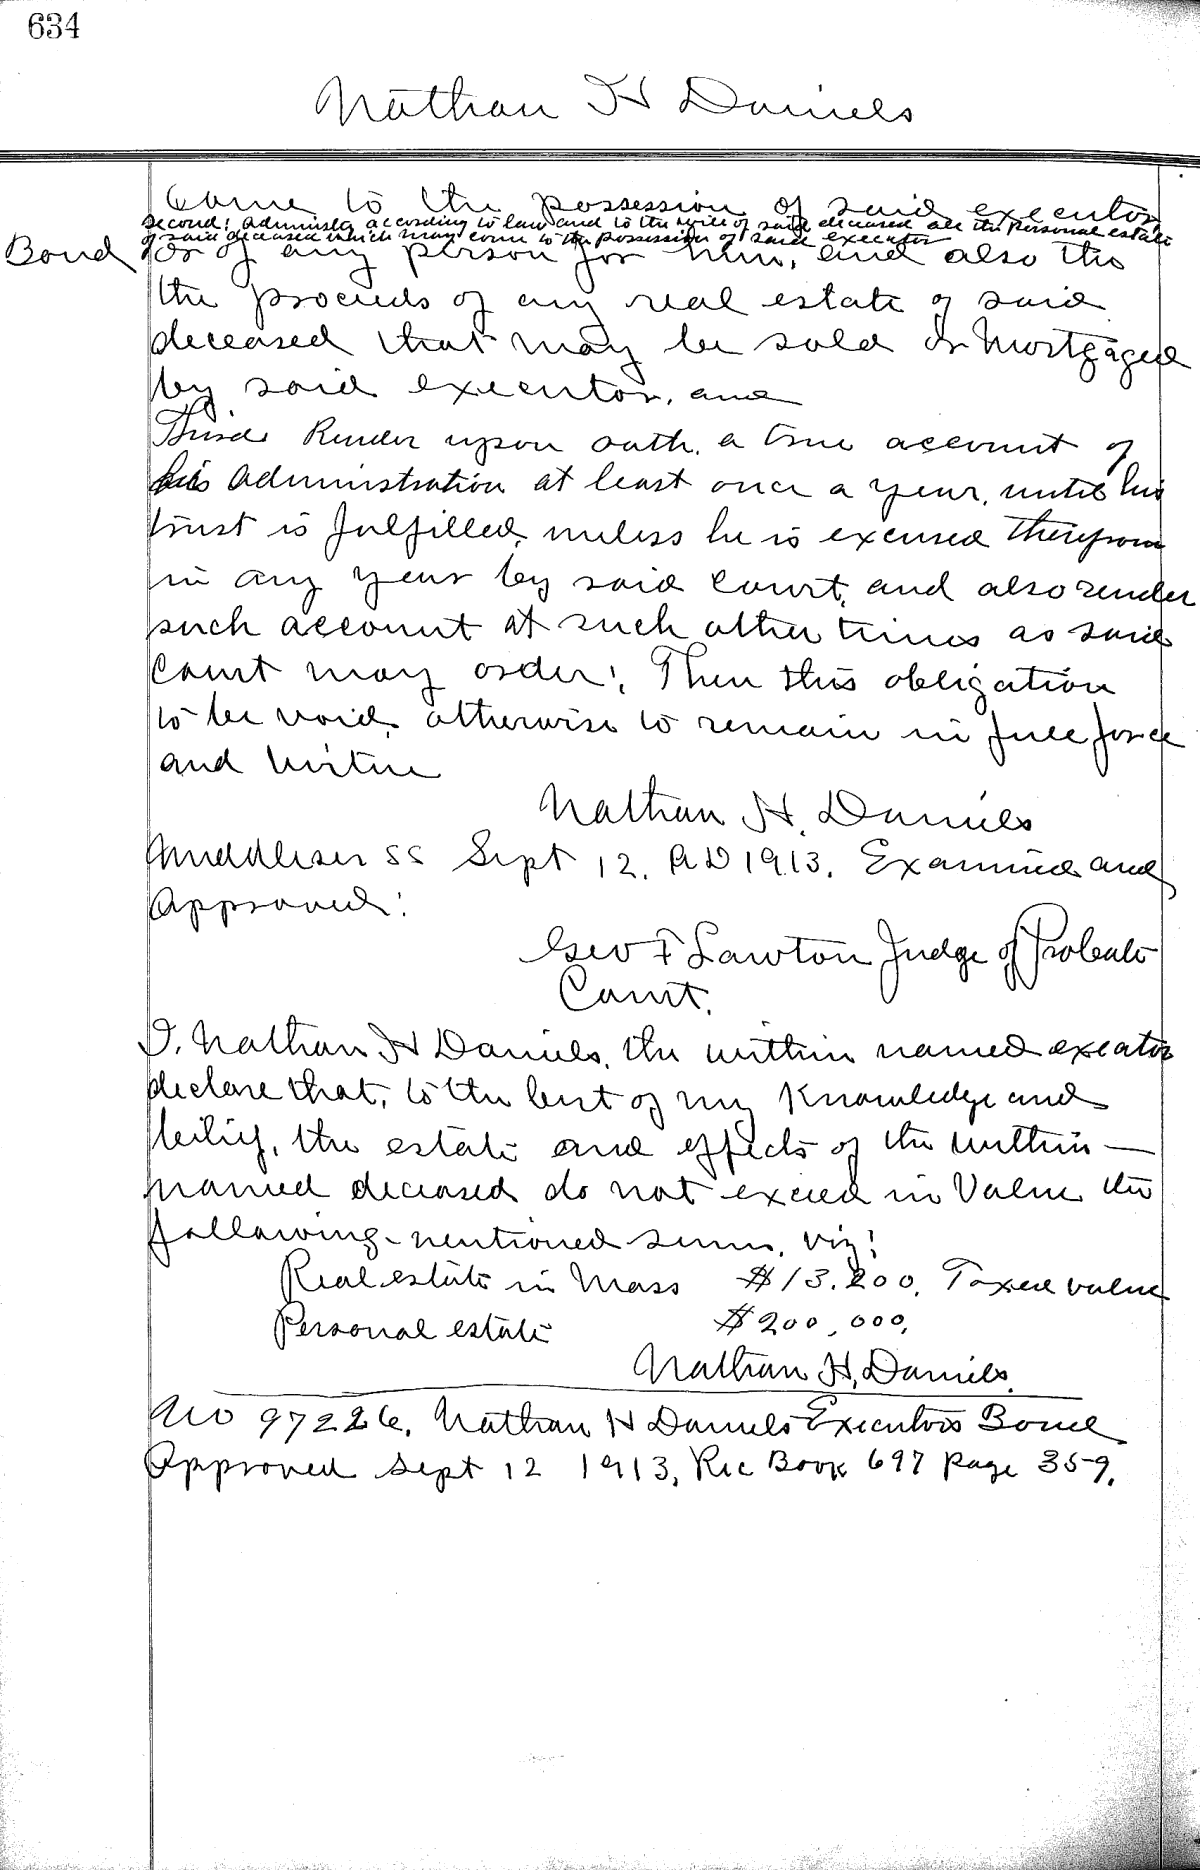 634
Nathan H Daniels
Came to the possession of said executor,
second: Administer according to law and to the will of said deceased all the personal estate
of said deceased which may come to the possession of said executor
Bond
or of any person for him, and also the
the proceeds of any real estate of said
deceased that may be sold or Mortgaged
by said executor, and
Third Render upon oath, a true account of
his administration at least once a year, until his
trust is fulfilled, unless he is excused therefrom
in any year by said Court, and also render
such account at such other times as said
Court may order; Then this obligation
to be void, otherwise to remain in full force
and Virtue
Nathan H. Daniels
Middlesex SS Sept 12. A D 1913. Examined and
Approved:
Geo F Lawton Judge of Probate
Court.
I, Nathan H Daniels, the within named exeator
declare that, to the best of my Knowledge and
belief, the estate and effects of the within—
named deceased do not exceed in Value the
following-mentioned sums, viz:
Real estate in Mass $13.200. Taxed value
Personal estate $200,000,
Nathan H. Daniels.
No 97226. Nathan H Daniels Executors Bond
Approved Sept 12 1913, Rec Book 697 Page 359.